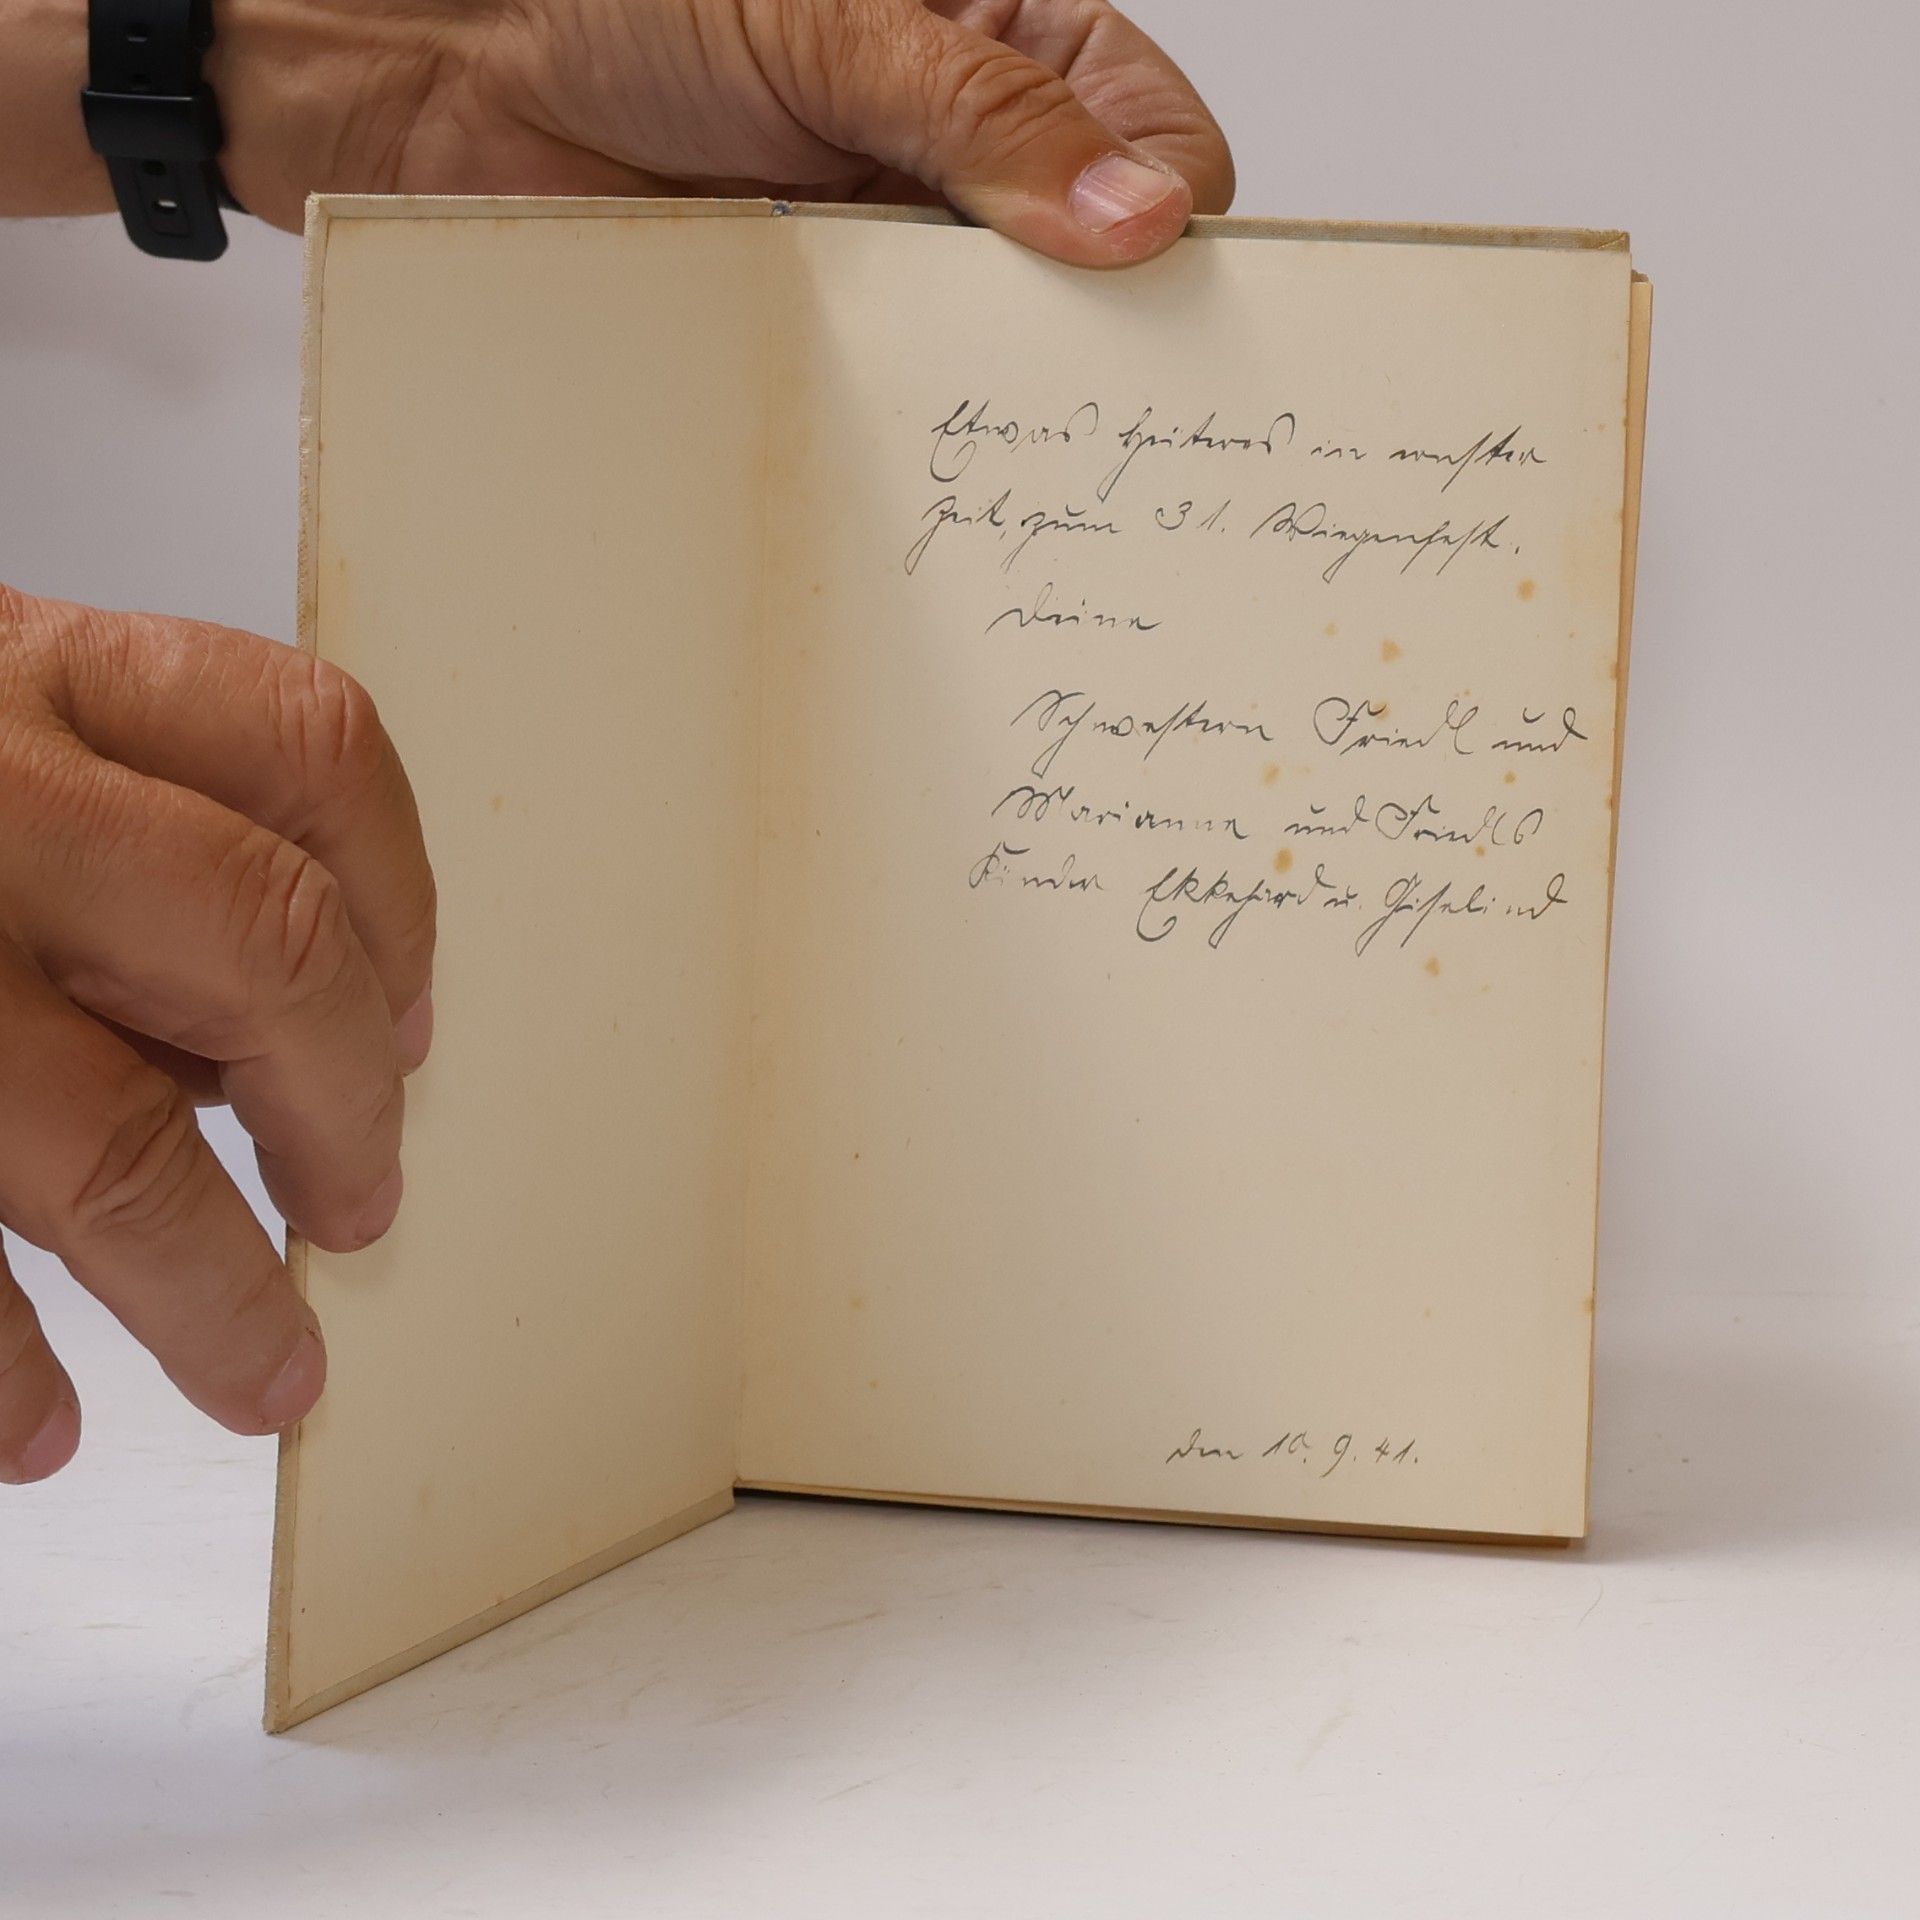 Etwas Heiteres in ernster
Zeit, zum 31. Wiegenfest.
Deine
Schwestern Friedl und
Marianne und Friedls
Kinder Ekkehard u. Giselind
den 10. 9. 41.